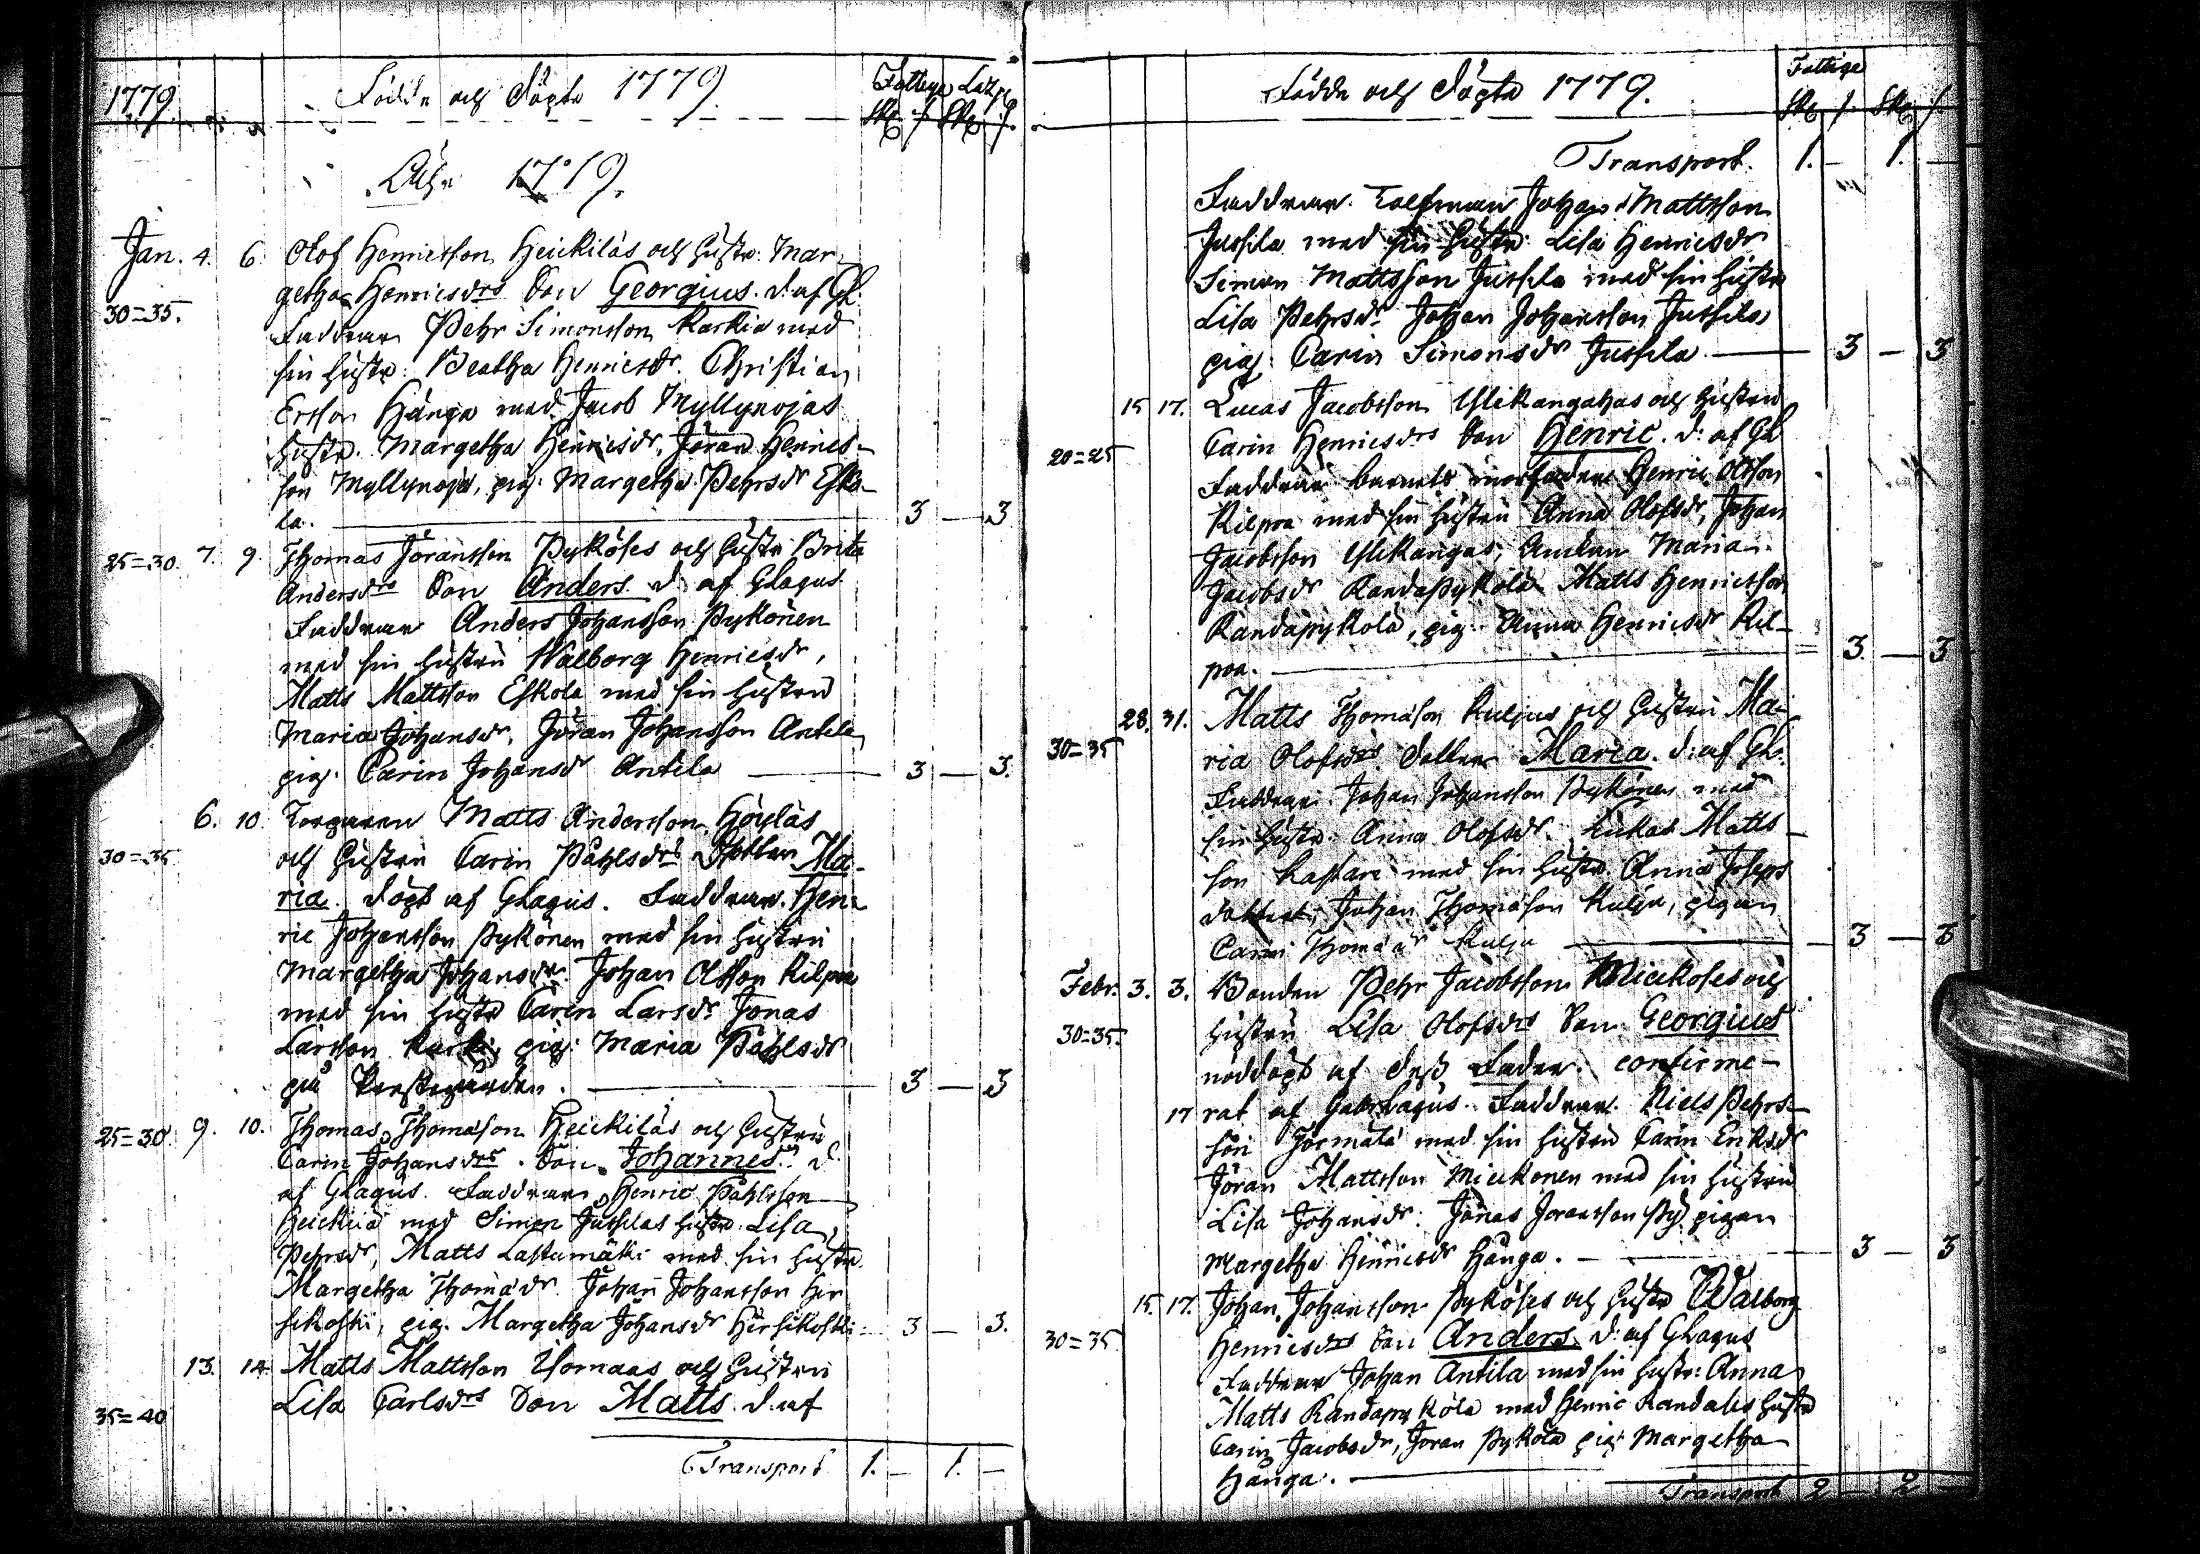 1779. Födde och Döpte 1779. Fattige Lazar.
Sk. f. Sk. f.
Åhr 1779.
Jan. 4. 6. Olof Henricsson Heickiläs och hustr. Mar-
30=35. getha Henricsdrs Son Georgius. d. af Gl.
Faddrar Pehr Simonsson Karkia med
sin hustr. Beatha Henricsdr. Christian
Ersson Hänga med Jacob Myllynojas
hustr. Margetha Henricsdr, Jöran Henrics-
son Myllynoja, pig. Margetha Pehrsdr Esko-
la. 3 — 3
25=30. 7. 9. Thomas Jöransson Pyköses och hustr. Brita
Andersdrs Son Anders d. af Glagus
Faddrar Anders Johansson Pykönen
med sin hustru Walborg Henricsdr,
Matts Mattsson Eskola med sin hustru
Maria Johansdr, Jöran Johansson Antila
pig. Carin Johansdr Antila 3 — 3.
6. 10. Matts Andersson Höyläs
30=35 och hustru Carin Påhlsdrs Dotter Ma-
ria. döpt af Glagus. Faddrar. Hen-
ric Johansson Pykönen med sin hustru
Margetha Johansdr. Johan Olsson Kilpua
med sin hustr Carin Larsdr. Jonas
Larsson Karki, pig. Maria Påhlsdr
på Prestgården. 3 — 3
25=30. 9. 10. Thomas Thomasson Heickiläs och hustru
Carin Johansdrs. Son Johannes. d
af Glagus. Faddrar Henric Påhlsson
Heickilä med Simon Jussilas hustr. Lisa
Pehrsdr, Matts Lastumäki med sin hustr
Margetha Thomædr. Johan Johansson Hir
sikoski, pig. Margetha Johansdr Hirsikoski 3 — 3.
13. 14. Matts Mattsson Uomaas och hustru
35=40 Lisa Carlsdrs Son Matts. d. af
Transport 1. — 1. —
Födde och Döpte 1779. Fattige
Sk. f. Sk. f.
Transport. 1. — 1. —
Faddrar. Tolfman Johan Mattsson
Jussila med sin hustr. Lisa Henricsdr
Simon Mattsson Jussila med sin hustr
Lisa Pehrsdr. Johan Johansson Jussila
pig. Carin Simonsdr Jussila. 3 — 3
15 17. Lucas Jacobsson Ylikangahas och hustru
20=25 Carin Henricsdrs Son Henric. d. af Gl
Faddrar barnets morfader Henric Olsson
Kilpua med sin hustru Anna Olofsdr, Johan
Jacobsson Ylikangas, Enkan Maria
Jacobsdr Randapykölä Matts Henricsson
Randapykölä, pig. Anna Henricsdr Kil-
pua. 3. — 3
28. 31. Matts Thomasson Kuljus och hustru Ma-
30=35 ria Olofsdrs. Dotter Maria. d. af Gl.
Faddrar. Johan Johansson Pykönen med
sin hustr. Anna Olofsdr. Lukas Matts-
son Kastari med sin hustr. Anna Josephs
dotter, Johan Thomasson Kulju, pigan
Carin Thomædr Kulju 3 — 3
Febr. 3. 3. Bonden Pehr Jacobsson Mieckoses och
30=35. hustru Lisa Olofsdrs Son Georgius
nöddöpt af dess Fader. confirme-
17 rat af Glagus. Faddrar. Niels Pehrs-
son Jormala med sin hustru Carin Eriksdr
Jöran Mattsson Mieckonen med sin hustru
Lisa Johansdr. Jonas Joransson Py. pigan
Margetha Henricsdr Hänga. 3 — 3
15. 17. Johan Johansson Pyköses och hustr Walborg
30=35 Henricsdrs Son Anders. d. af Glagus
Faddrar Johan Antila med sin hustr. Anna
Matts Randapykölä med Henric Randalas hustr
Carin Jacobsdr, Joran Pykölä pig. Margetha
Hänga.
Transport 2 — 2 —